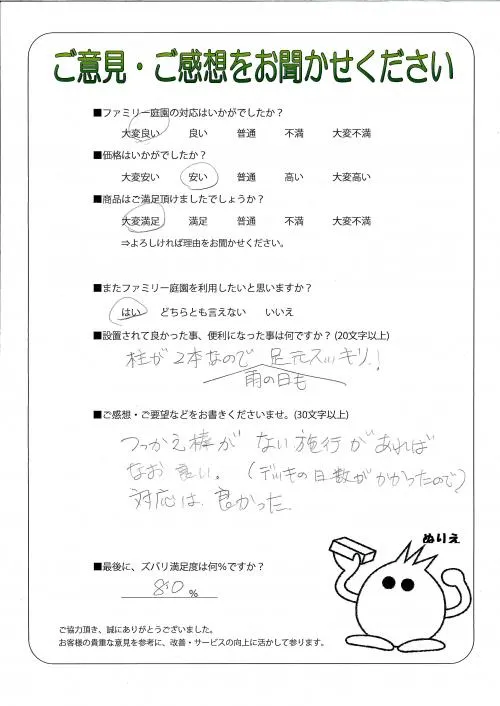 ご意見・ご感想をお聞かせください
■ファミリー庭園の対応はいかがでしたか？
大変良い 良い 普通 不満 大変不満
■価格はいかがでしたか？
大変安い 安い 普通 高い 大変高い
■商品はご満足頂けましたでしょうか？
大変満足 満足 普通 不満 大変不満
⇒よろしければ理由をお聞かせください。
■またファミリー庭園を利用したいと思いますか？
はい どちらとも言えない いいえ
■設置されて良かった事、便利になった事は何ですか？(20文字以上)
柱が2本なので 足元スッキリ！
雨の日も
■ご感想・ご要望などをお書きくださいませ。(30文字以上)
つっかえ棒が ない施行があれば
なお良い。(デッキの日数がかかったので)
対応は良かった
ぬりえ
■最後に、ズバリ満足度は何％ですか？
80 %
ご協力頂き、誠にありがとうございました。
お客様の貴重な意見を参考に、改善・サービスの向上に活かして参ります。